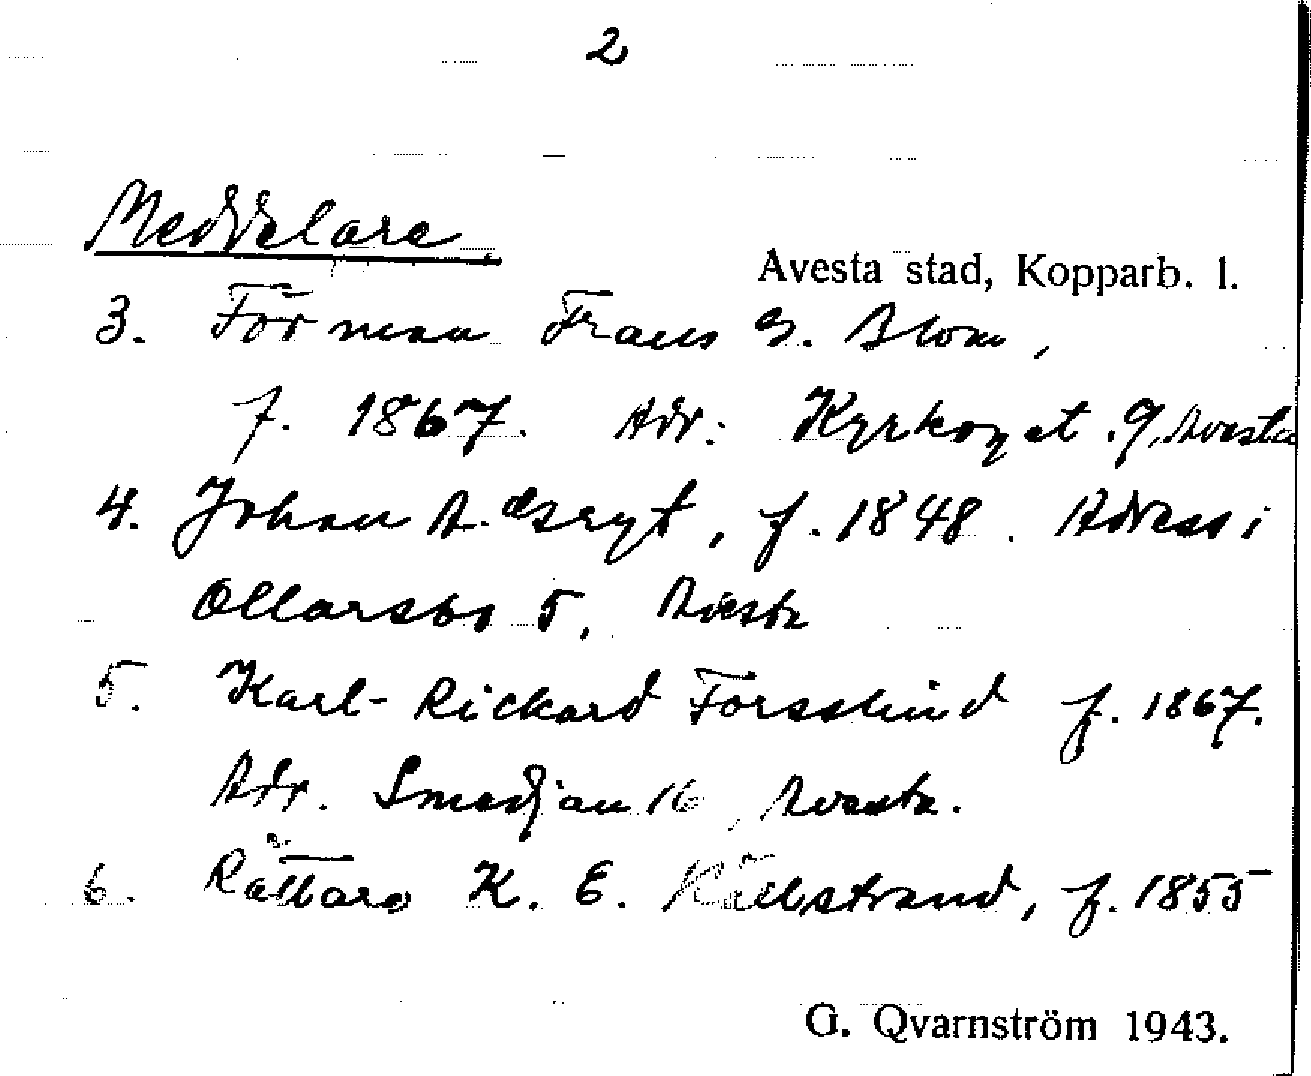 2
Meddelare
Avesta stad, Kopparb. l.
3. Förman Frans G. Blom,
f. 1867. Adr: Kyrkogat. 9, Avesta
4. Johan A. f. 1848. Adress i
Ollarsbo 5, Avesta
5. Karl-Rickard Forsslund f. 1867.
Adr. Smedjan 16, Avesta.
6. Rättare K. E. Källstrand, f. 1855
G. Qvarnström 1943.